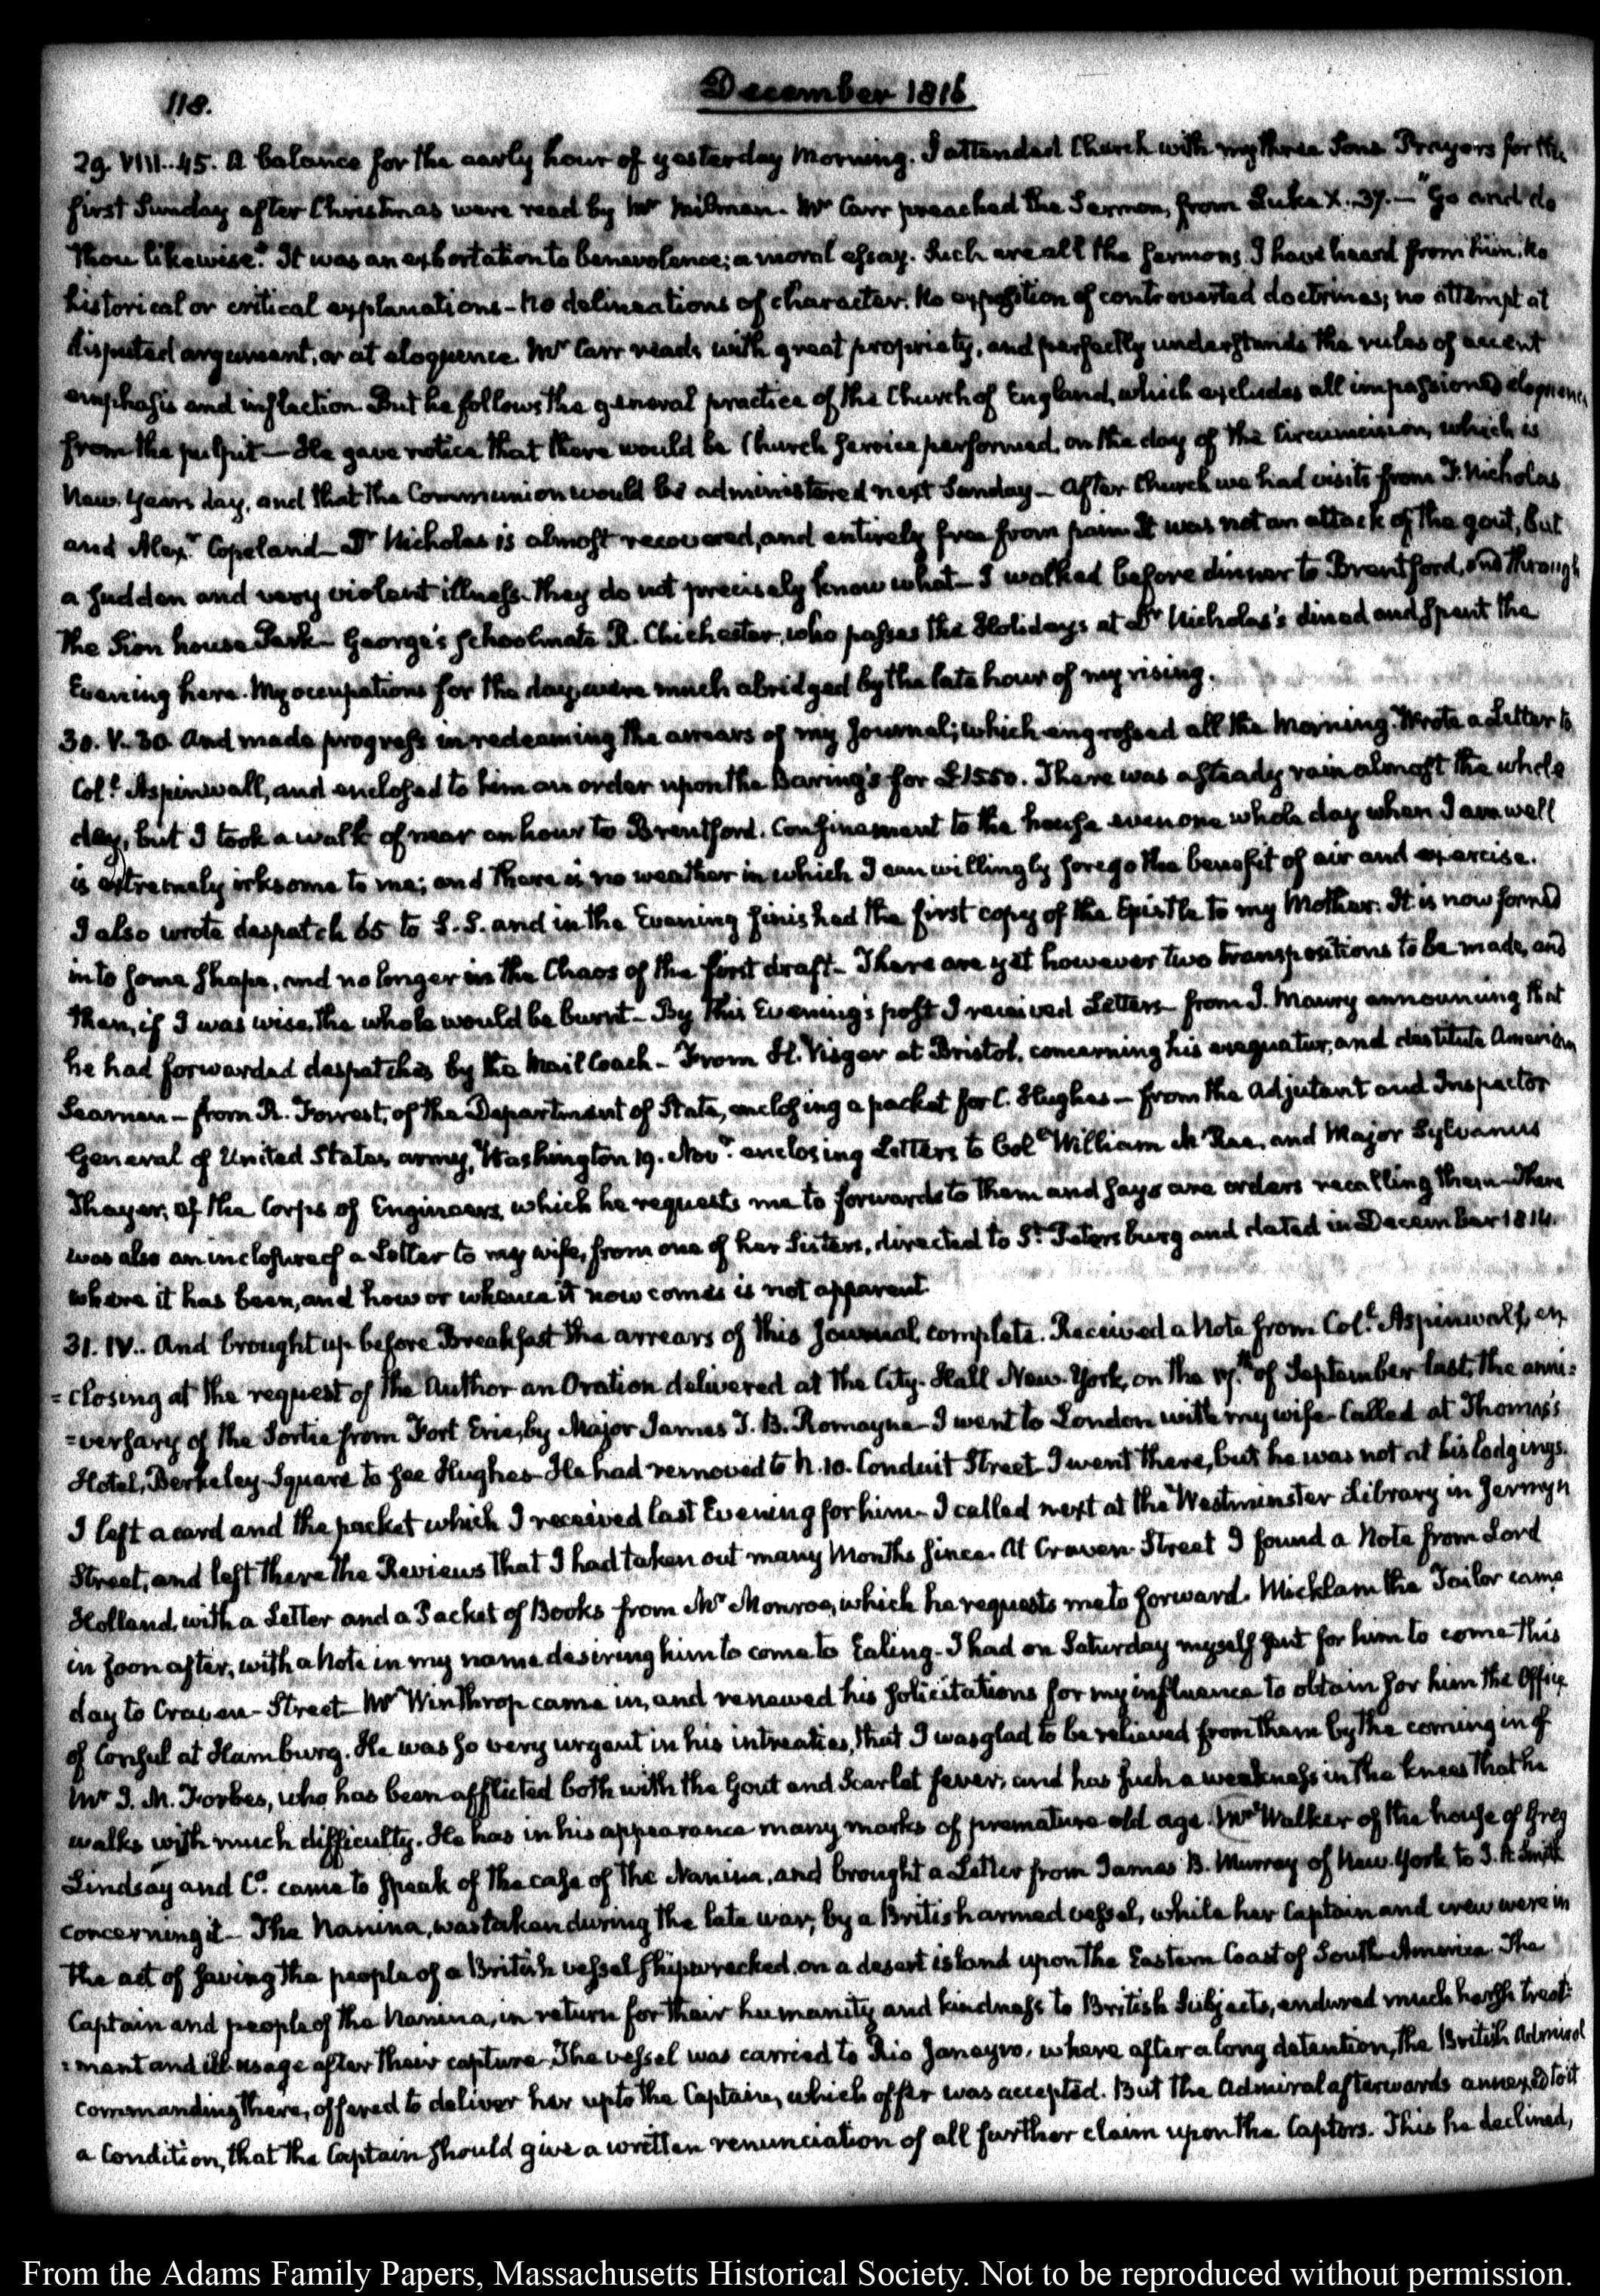 118.
December 1816
29. VIII..45. A balance for the early hour of yesterday Morning. I attended Church with my three Sons. Prayers for the
first Sunday after Christmas were read by Mr Milman. Mr Carr preached the Sermon, from Luke X. 37.— "Go and do
thou likewise." It was an exhortation to benevolence; a moral essay. Such are all the Sermons I have heard from him. No
historical or critical explanations – No delineations of character. No exposition of controverted doctrines; no attempt at
disputed argument, or at eloquence. Mr Carr reads with great propriety, and perfectly understands the rules of accent
emphasis and inflection. But he follows the general practice of the Church of England, which excludes all impassioned eloquence
from the pulpit— He gave notice that there would be Church service performed, on the day of the Circumcision, which is
New-Years day, and that the Communion would be administered next Sunday— After Church we had visits from F. Nicholas
and Alexr Copeland— Dr Nicholas is almost recovered, and entirely free from pain. It was not an attack of the gout, but
a sudden and very violent illness. They do not precisely know what— I walked before dinner to Brentford, and through
the Sion house Park— George's schoolmate R. Chichester, who passes the Holidays at Dr Nicholas's dined and spent the
Evening here. My occupations for the day, were much abridged by the late hour of my rising.
30. V. 30. And made progress in redeeming the arrears of my Journal; which engrossed all the Morning. Wrote a Letter to
Coll Aspinwall, and enclosed to him an order upon the Baring's for £1550. There was a steady rain almost the whole
day, but I took a walk of near an hour to Brentford. Confinement to the house even one whole day when I am well
is extremely irksome to me; and there is no weather in which I can willingly forego the benefit of air and exercise.
I also wrote despatch 65 to S. S. and in the Evening finished the first copy of the Epistle to my Mother. It is now formed
into some shape, and no longer in the Chaos of the first draft— There are yet however two transpositions to be made, and
then, if I was wise, the whole would be burnt— By this Evening's post I received Letters— from J. Maury announcing that
he had forwarded despatches by the Mail Coach— From H. Visger at Bristol, concerning his exequatur, and destitute American
Seamen— from R. Forrest, of the Department of State, enclosing a packet for C. Hughes— from the Adjutant and Inspector
General of United States army, Washington 19. Novr enclosing Letters to Coll William McRee, and Major Sylvanus
Thayer, of the Corps of Engineers, which he requests me to forward to them and says are orders recalling them— There
was also an inclosure of a Letter to my wife, from one of her Sisters, directed to St Petersburg and dated in December 1814.
where it has been, and how or whence it now comes is not apparent.
31. IV.. And brought up before Breakfast the arrears of this Journal, complete. Received a Note from Coll Aspinwall, en
=closing at the request of the Author an Oration delivered at the City-Hall New-York, on the 17th of September last, the anni=
=versary of the Sortie from Fort Erie, by Major James T. B. Romayne— I went to London with my wife. Called at Thomas's
Hotel, Berkeley-Square to see Hughes. He had removed to N. 10. Conduit Street. I went there, but he was not at his lodgings.
I left a card and the packet which I received last Evening for him— I called next at the Westminster Library in Jermyn
Street, and left there the Reviews that I had taken out many Months since. At Craven-Street I found a Note from Lord
Holland, with a Letter and a Packet of Books from Mr Monroe, which he requests me to forward. Micklam the Tailor came
in soon after, with a Note in my name desiring him to come to Ealing. I had on Saturday myself sent for him to come this
day to Craven-Street— Mr Winthrop came in, and renewed his solicitations for my influence to obtain for him the Office
of Consul at Hamburg. He was so very urgent in his intreaties, that I was glad to be relieved from them by the coming in of
Mr J. M. Forbes, who has been afflicted both with the Gout and Scarlet fever; and has such a weakness in the knees that he
walks with much difficulty. He has in his appearance many marks of premature old age. Mr Walker of the house of Greg
Lindsay and Co. came to speak of the case of the Nanina, and brought a Letter from James B. Murray of New-York to J. A. Smith
concerning it— The Nanina, was taken during the late war, by a British armed vessel, while her Captain and crew were in
the act of saving the people of a British vessel shipwrecked, on a desert island upon the Eastern Coast of South-America. The
Captain and people of the Nanina, in return for their humanity and kindness to British Subjects, endured much harsh treat=
=ment and ill usage after their capture. The vessel was carried to Rio Janeyro, where after a long detention, the British Admiral
commanding there, offered to deliver her up to the Captain, which offer was accepted. But the Admiral afterwards annexed to it
a Condition, that the Captain should give a written renunciation of all further claim upon the Captors. This he declined,
From the Adams Family Papers, Massachusetts Historical Society. Not to be reproduced without permission.